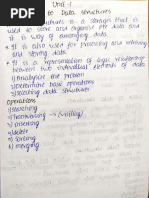 Unit-1
to Data structures
structures is a storage that is
used to store and organize the data and
it is way of arranging data.
* It is also used for processing and retrieving
and storing data.
* It is a representation of logic relationship
between two individual elements of data
1) Analyze the problem
2) Determine basic operations
3) Selecting data structures
operations
1) searching
2) Traversing → (visiting)
3) Insertion
4) delete
5) sorting
6) merging